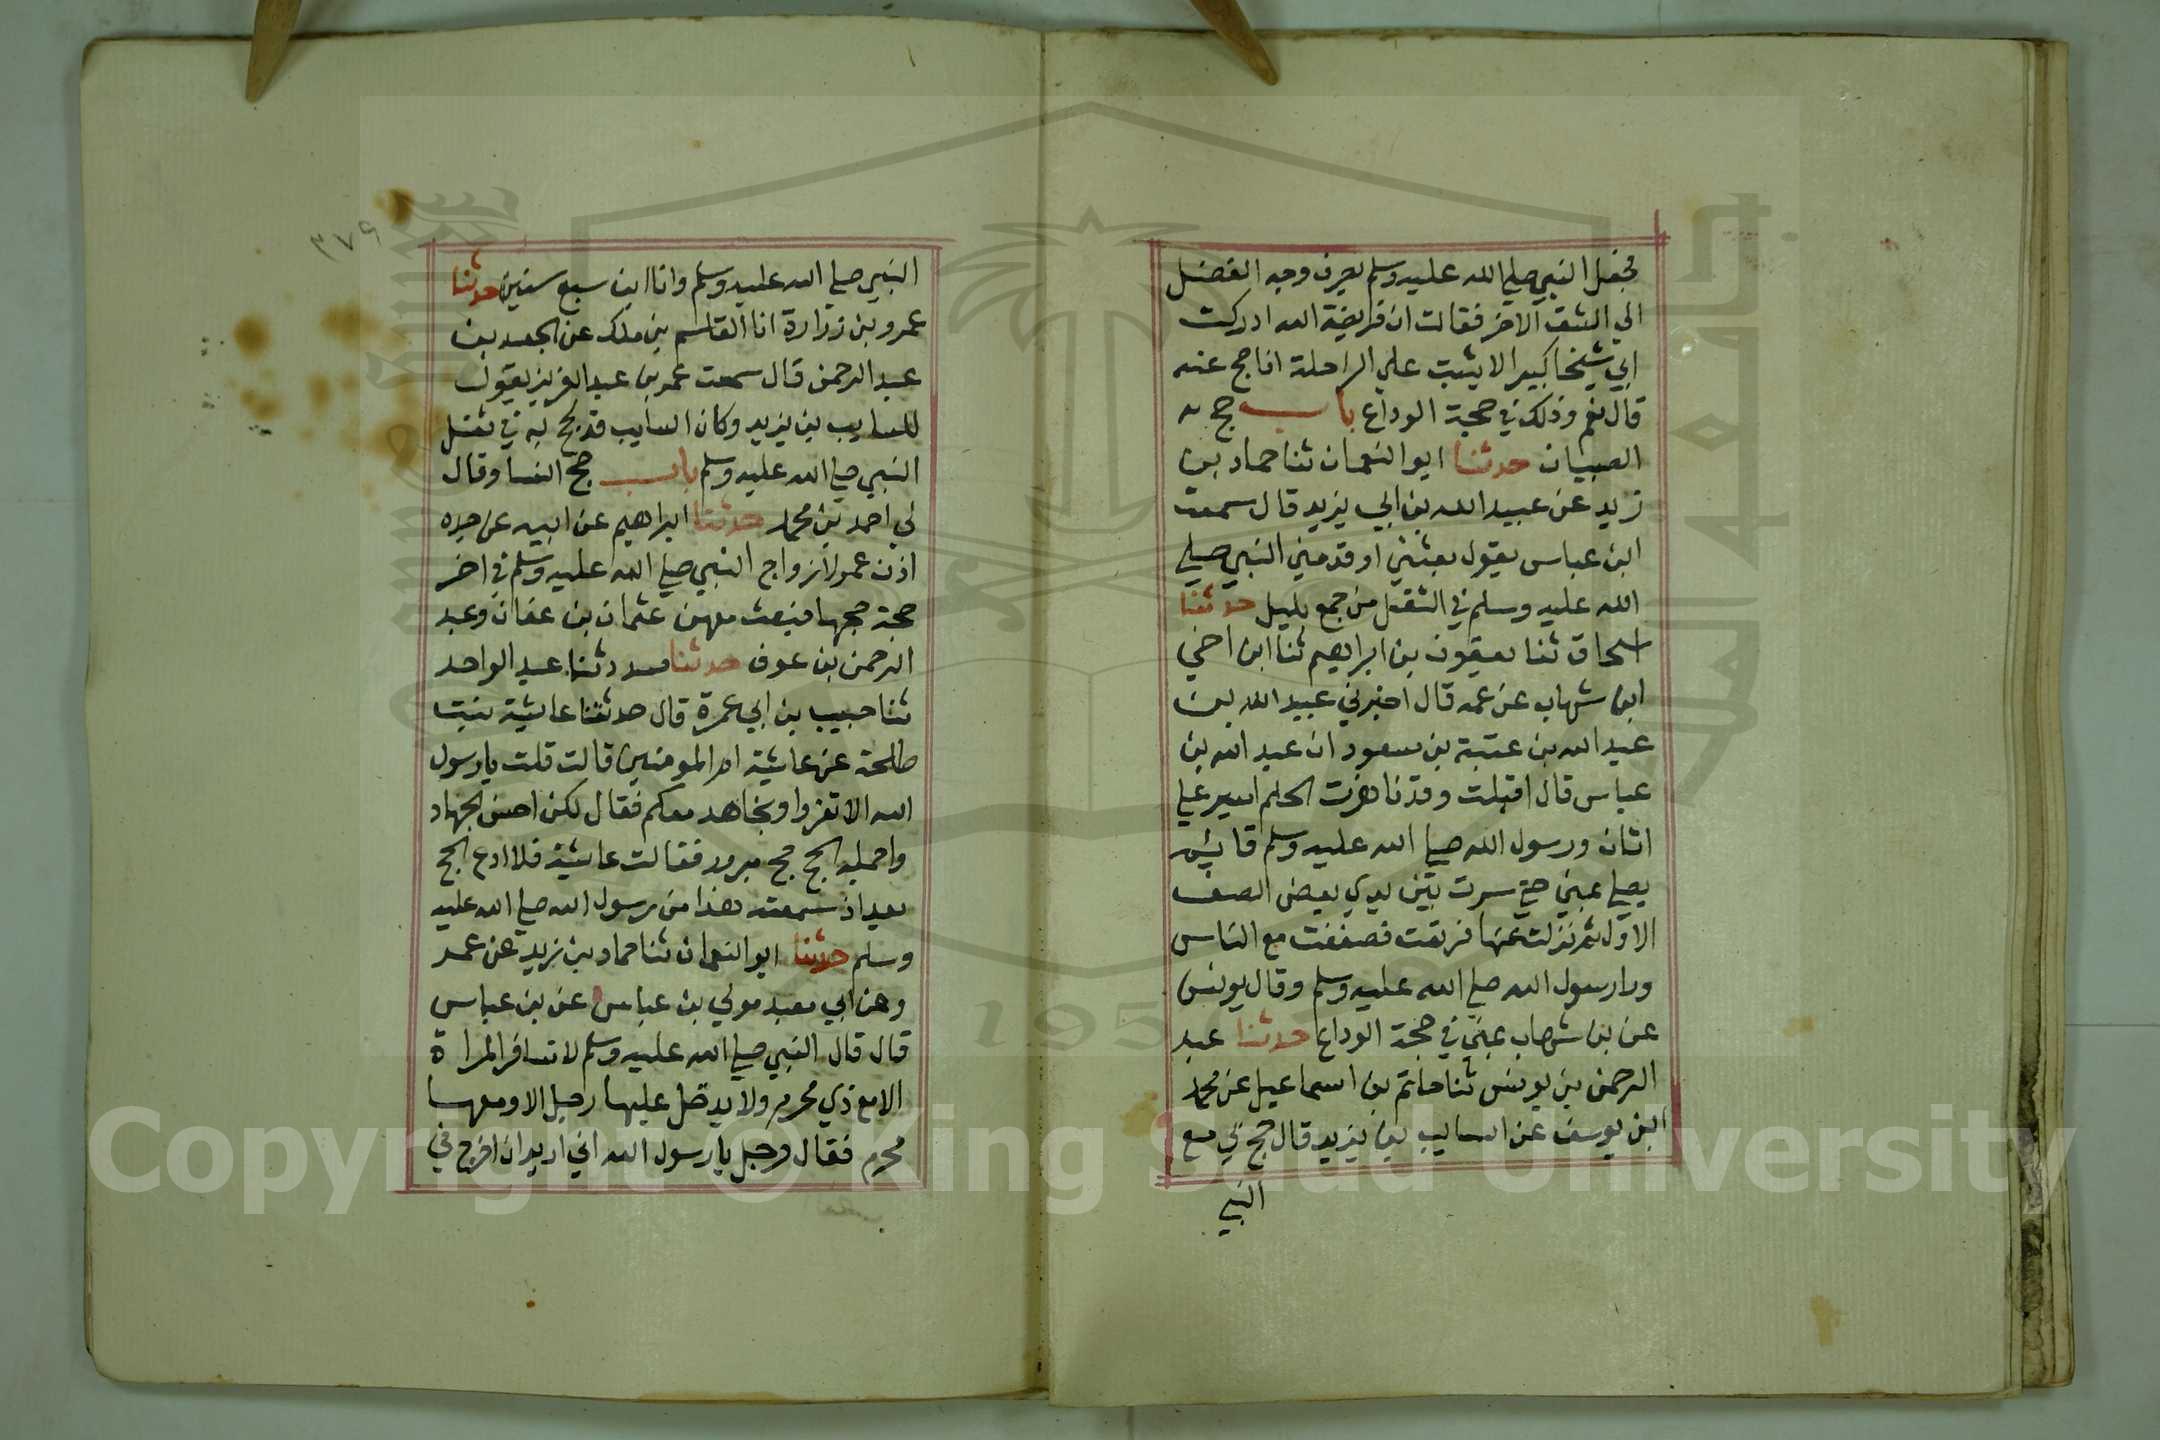 فجعل النبي صلي الله عليه وسلم يصرف وجه الفضل
الي الشق الاخر فقالت ان فريضة الله ادركت
ابي شيخا كبيرا لا يثبت علي الراحلة افاحج عنه
قال نعم وذلك في حجة الوداع باب حج
الصبيان حدثنا ابو النعمان ثنا حماد بن
زيد عن عبيد الله بن ابي يزيد قال سمعت
ابن عباس يقول بعثني او قدمني النبي صلي
الله عليه وسلم في الثقل من جمع بليل حدثنا
اسحاق ثنا يعقوب بن ابراهيم ثنا ابن اخي
ابن شهاب عن عمه قال اخبرني عبيد الله بن
عبد الله بن عتبة بن مسعود ان عبد الله بن
عباس قال اقبلت وقد ناهزت الحلم اسير علي
اتان ورسول الله صلي الله عليه وسلم قايم
يصلي بمني حتي سرت بين يدي بعض الصف
الاول ثم نزلت عنها فرتعت فصففت مع الناس
ورا رسول الله صلي الله عليه وسلم وقال يونس
عن بن شهاب بمني في حجة الوداع حدثنا عبد
الرحمن بن يونس ثنا حاتم بن اسماعيل عن محمد
ابن يوسف عن السايب بن يزيد قال حج بي مع
النبي
٣٧٩
النبي صلي الله عليه وسلم وانا ابن سبع سنين حدثنا
عمرو بن زرارة انا القاسم بن ملك عن الجعيد بن
عبد الرحمن قال سمعت عمر بن عبد العزيز يقول
للسايب بن يزيد وكان السايب قد حج به في ثقل
النبي صلي الله عليه وسلم باب حج النسا وقال
لي احمد بن محمد حدثنا ابراهيم عن ابيه عن جده
اذن عمر لازواج النبي صلي الله عليه وسلم في اخر
حجة حجها فبعث معهن عثمان بن عفان وعبد
الرحمن بن عوف حدثنا مسدد ثنا عبد الواحد
ثنا حبيب بن ابي عمرة قال حدثتنا عايشة بنت
طلحة عن عايشة ام المومنين قالت قلت يا رسول
الله الا تغزوا ونجاهد معكم فقال لكن احسن الجهاد
واجمله الحج حج مبرور فقالت عايشة فلا ادع الحج
بعد اذ سمعت هذا من رسول الله صلي الله عليه
وسلم حدثنا ابو النعمان ثنا حماد بن زيد عن عمر
وعن ابي معبد مولي بن عباس عن بن عباس
قال قال النبي صلي الله عليه وسلم لا تسافر المراة
الا مع ذي محرم ولا يدخل عليها رجل الا ومعها
محرم فقال رجل يا رسول الله اني اريد ان اخرج في
Copyright © King Saud University
1957